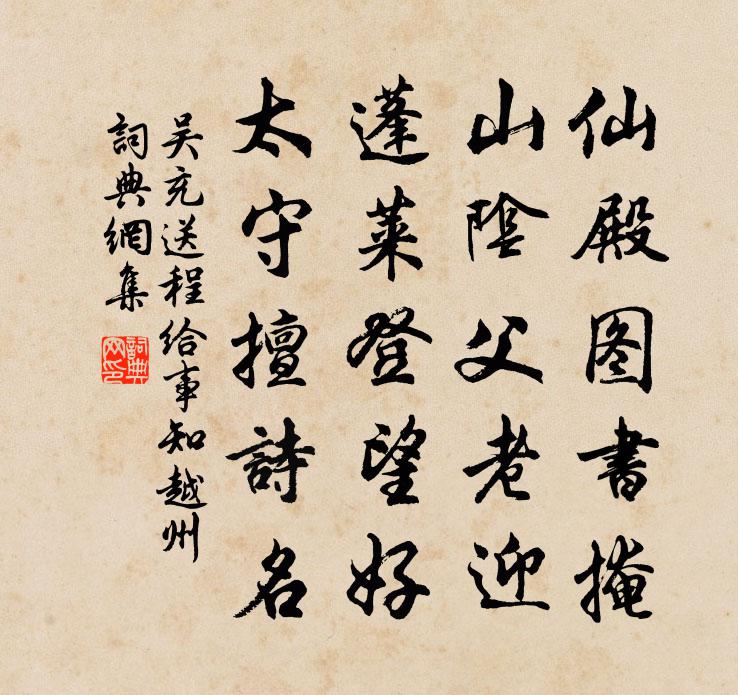 仙殿图書掩
山陰父老迎
蓬萊登望好
太守擅詩名
吴充送程给事知越州
詞典網集
詞典網印